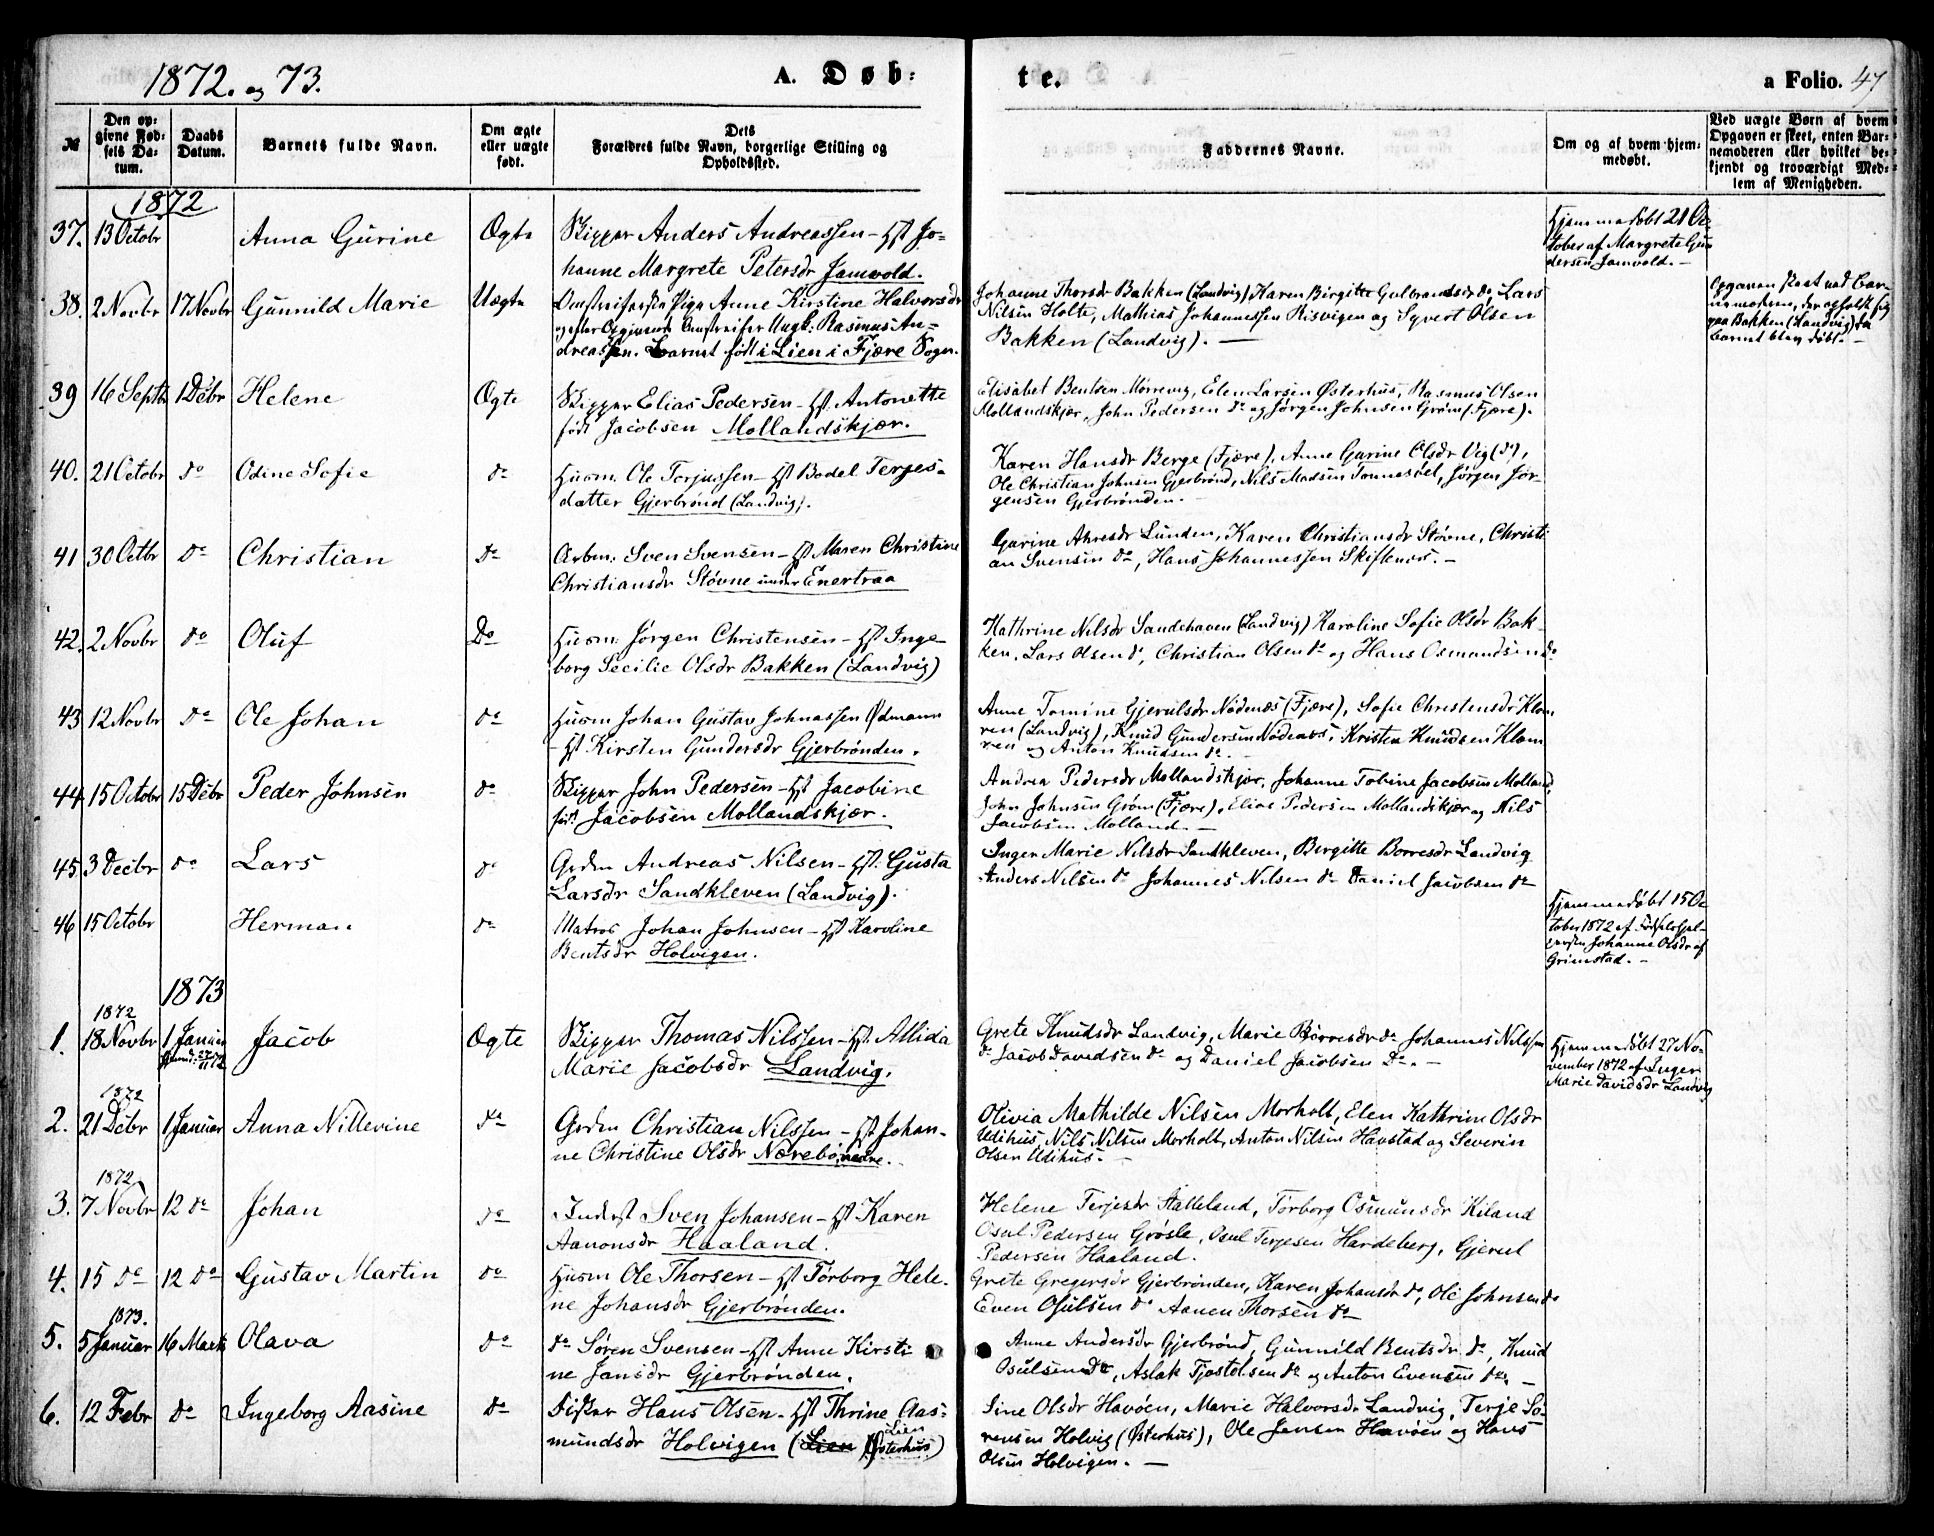 1872. og 73.
A. Døb:
te.
a Folio. 47
№
Den op-
givne Fød-
sels Da-
tum.
Daabs
Datum.
Barnets fulde Navn.
Om ægte
eller uægte
født.
Dets
Forældres fulde Navn, borgerlige Stilling og
Opholdssted.
Faddernes Navne.
Om og af hvem hjem-
medøbt.
Ved uægte Børn af hvem
Opgaven er skeet, enten Bar-
nemoderen eller hvilket be-
kjendt og troværdigt Med-
lem af Menigheden.
1872
37. 13 Octobr Anna Gurine Ægte Skipper Anders Andreassen – Hst Jo-
hanne Margrete Petersdr Jamvold.
Hjemmedøbt 21 Oc-
tober af Margrete Gun-
dersen Jamvold. –
38. 2 Novbr 17 Novbr Gunnild Marie Uægte Omstreiferske Pige Anne Kirstine Halvorsdr
og efter Opgivende Omstreifer Ungk. Rasmus An-
dreassen. Barnet født i Lien i Fjære Sogn.
Johanne Thorsdr Bakken (Landvig) Karen Birgitte Gulbrandsdr do, Lars
Nilsen Holte, Mathias Johannessen Risvigen og Syvert Olsen
Bakken (Landvig). –
Opgaven skeet ved Bar-
nemoderen, der opholdt sig
paa Bakken (Landvig) da
Barnet blev døbt. –
39 16 Septbr 1 Debr Helene Ægte Skipper Elias Pedersen – Hst. Antonette
født Jacobsen Mollandskjær.
Elisabet Bentsen Mørrevig, Elen Larsen Østerhus, Rasmus Olsen
Mollandskjær, John Pedersen do og Jørgen Johnsen Grøm (Fjære).
40. 21 Octobr do Odine Sofie do Husm. Ole Terjussen – Hst Bodel Terjes-
datter Gjerbrønd (Landvig).
Karen Hansdr Berge (Fjære), Anne Gurine Olsdr Vig (do),
Ole Christian Johnsen Gjerbrønd, Nils Madsen Tønnesøel, Jørgen Jør-
gensen Gjerbrønden. –
41 30 Octbr do Christian do Arbm: Sven Svensen – Hst Maren Christine
Christiansdr Støvne under Enertraa
Gurine Akresdr Lunden, Karen Christiansdr Støvne, Christi-
an Svensen do, Hans Johannessen Skiftenes. –
42. 2 Novbr do Oluf Do Husm: Jørgen Christensen – Hst Inge-
borg Secilie Olsdr Bakken (Landvig)
Kathrine Nilsdr Sandehaven (Landvig) Karoline Sofie Olsdr Bak-
ken, Lars Olsen do, Christian Olsen do og Hans Osmundsen do
43 12 Novbr do Ole Johan do Husm Johan Gustav Johnassen Ødmann
– Hst Kirsten Gundersdr Gjerbrønden.
Anne Tomine Gjerulsdr Nødenæs (Fjære), Sofie Christensdr Klom-
ren (Landvig), Knud Gundersen Nødenæs, Kristen Knudsen Klom-
ren og Anton Knudsen do –
44 15 Octobr 15 Debr Peder Johnsen do Skipper John Pedersen – Hst Jacobine
født Jacobsen Mollandskjær.
Andrea Pedersdr Mollandskjær, Johanne Tobine Jacobsen Molland,
John Johnsen Grøm (Fjære), Elias Pedersen Mollandskjær og Nils
Jacobsen Molland. –
45 3 Decbr do Lars do Grdm Andreas Nilsen – Hst: Gusta
Larsdr Sandkleven (Landvig).
Inger Marie Nilsdr Sandkleven, Birgitte Borresdr Landvig
Anders Nilsen do Johannes Nilsen do Daniel Jacobsen do
46 15 Octobr Herman do Matros Johan Johnsen – Hst Karoline
Bentsdr Holvigen.
Hjemmedøbt 15 Oc-
tober 1872 af Fødselshjæl-
persken Johanne Olsdr af
Grimstad. –
1873
1872
1. 18 Novbr 1 Januar Jacob Ægte Skipper Thomas Nilssen – Hst. Allida
Marie Jacobsdr Landvig.
Grete Knudsdr Landvig, Marie Børresdr do Johannes Nilssen
do Jacob Davidsen do og Daniel Jacobsen Do. –
Hjemmedøbt 27 No-
vember 1872 af Inger
Marie Davidsdr Landvig
1872
2. 21 Debr 1 Januar Anna Nillevine do Grdm Christian Nilssen – Hst Johan-
ne Christine Olsdr Nærebø nedre.
Olivia Mathilde Nilsen Morholt, Elen Kathrine Olsdr
Udihus, Nils Nilsen Morholt, Anton Nilsen Havstad og Severin
Olsen Udihus. –
1872
3. 7 Novbr 12 do Johan do Inderst Sven Johansen – Hst Karen
Aanonsdr Haaland.
Helene Terjesdr Stalleland, Torborg Osmundsdr Kiland
Osul Pedersen Grøsle, Osul Terjesen Hardeberg, Gjerul
Pedersen Haaland.
4. 15 do 12 do Gustav Martin do Husm Ole Thorsen – Hst Torborg Hele-
ne Johansdr Gjerbrønden.
Grete Gregersdr Gjerbrønden, Karen Johansdr do, Ole Johnsen do
Even Osulsen do Aanen Thorsen do
1873.
5. 5 Januar 16 Marts Olava do do Søren Svensen – Hst Anne Kirsti-
ne Jansdr Gjerbrønden.
Anne Andersdr Gjerbrønd, Gunnild Bentsdr do, Knud
Osulsen Do, Aslak Tjostolsen do og Anton Evensen do. –
6. 12 Febr do Ingeborg Aasine do Fisker Hans Olsen – Hst Thrine Aas-
mundsdr Holvigen (Lien Østerhus)
Lien
Sine Olsdr Havøen, Marie Halvorsdr Landvig, Terje Sø-
rensen Holvig (Østerhus), Ole Jensen Havøen og Hans
Olsen Holvigen. –